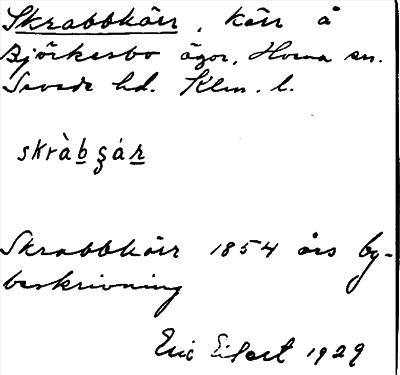 Skrabbkärr, kärr å
Björkesbo ägor, Horna sn.
Sevede hd. Klm. l.
skràb ʒár
Skrabbkärr 1854 års by-
beskrivning
Eric Eifert 1929